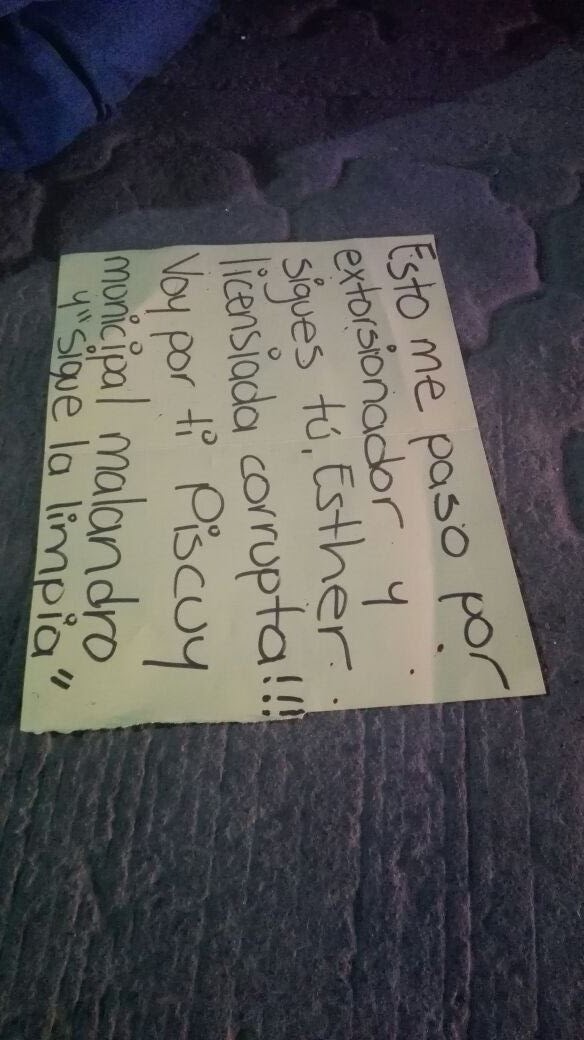 Esto me paso por
extorsionador y
sigues tú, Esther.
licensiada corrupta!!!
Voy por ti Piscuy
municipal malandro
y "sigue la limpia"